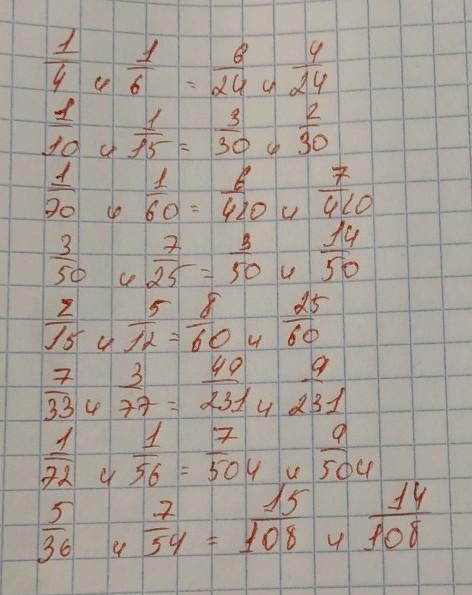 1/4 и 1/6 = 6/24 и 4/24
1/10 и 1/15 = 3/30 и 2/30
1/70 и 1/60 = 6/420 и 7/420
3/50 и 7/25 = 3/50 и 14/50
2/15 и 5/12 = 8/60 и 25/60
7/33 и 3/77 = 49/231 и 9/231
1/72 и 1/56 = 7/504 и 9/504
5/36 и 7/54 = 15/108 и 14/108